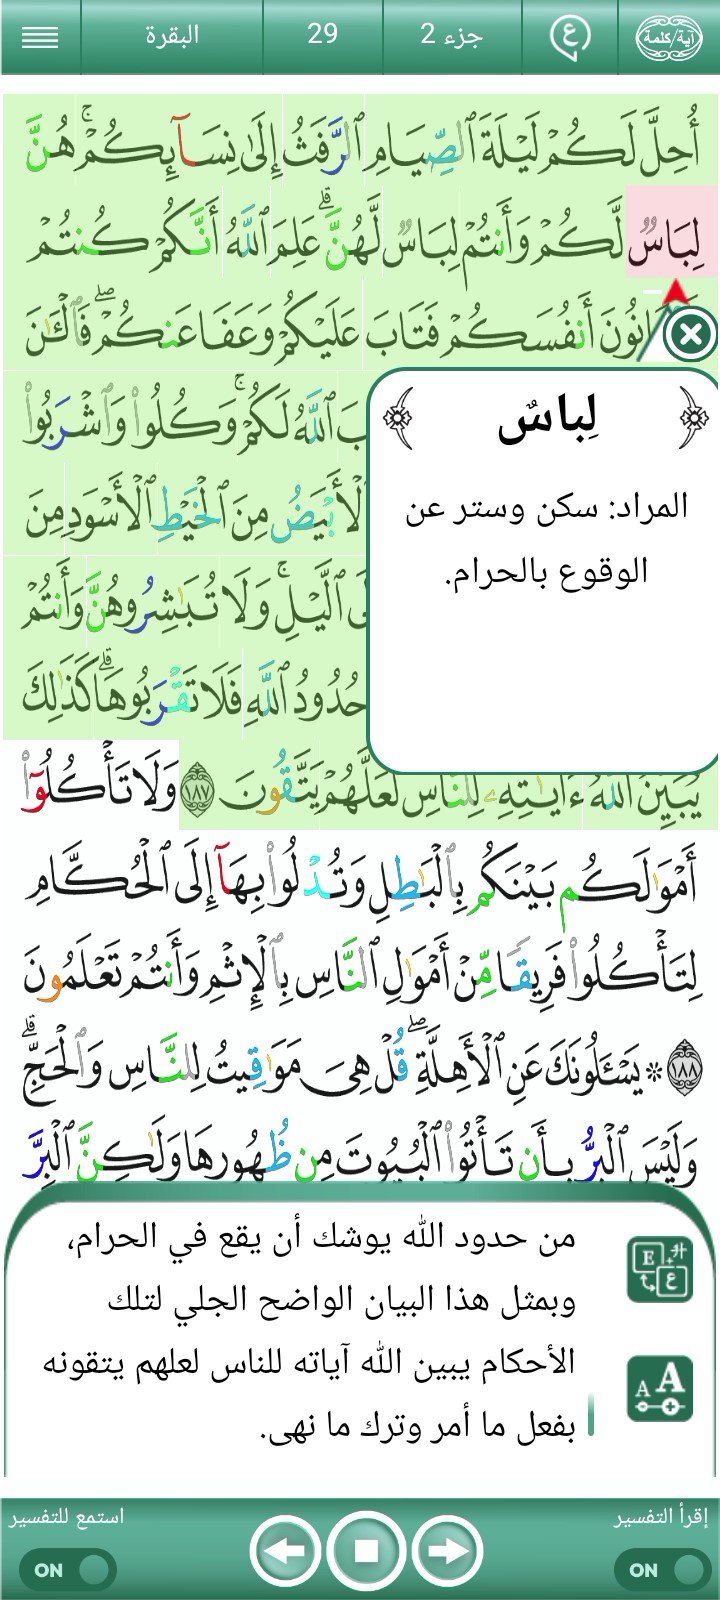 آية/كلمة ع جزء 2 29 البقرة
أُحِلَّ لَكُمْ لَيْلَةَ ٱلصِّيَامِ ٱلرَّفَثُ إِلَىٰ نِسَآئِكُمْۚ هُنَّ
لِبَاسٌ لَّكُمْ وَأَنتُمْ لِبَاسٌ لَّهُنَّۗ عَلِمَ ٱللَّهُ أَنَّكُمْ كُنتُمْ
تَخْتَانُونَ أَنفُسَكُمْ فَتَابَ عَلَيْكُمْ وَعَفَا عَنكُمْۖ فَٱلْـَٰٔنَ
ٱللَّهُ لَكُمْۚ وَكُلُوا۟ وَٱشْرَبُوا۟
ٱلْأَبْيَضُ مِنَ ٱلْخَيْطِ ٱلْأَسْوَدِ مِنَ
ٱلَّيْلِۚ وَلَا تُبَـٰشِرُوهُنَّ وَأَنتُمْ
حُدُودُ ٱللَّهِ فَلَا تَقْرَبُوهَاۗ كَذَٰلِكَ
يُبَيِّنُ ٱللَّهُ ءَايَـٰتِهِۦ لِلنَّاسِ لَعَلَّهُمْ يَتَّقُونَ ١٨٧ وَلَا تَأْكُلُوٓا۟
أَمْوَٰلَكُم بَيْنَكُم بِٱلْبَـٰطِلِ وَتُدْلُوا۟ بِهَآ إِلَى ٱلْحُكَّامِ
لِتَأْكُلُوا۟ فَرِيقًا مِّنْ أَمْوَٰلِ ٱلنَّاسِ بِٱلْإِثْمِ وَأَنتُمْ تَعْلَمُونَ
١٨٨ * يَسْـَٔلُونَكَ عَنِ ٱلْأَهِلَّةِۖ قُلْ هِىَ مَوَٰقِيتُ لِلنَّاسِ وَٱلْحَجِّۗ
وَلَيْسَ ٱلْبِرُّ بِأَن تَأْتُوا۟ ٱلْبُيُوتَ مِن ظُهُورِهَا وَلَـٰكِنَّ ٱلْبِرَّ
لِباسٌ
المراد: سكن وستر عن
الوقوع بالحرام.
من حدود الله يوشك أن يقع في الحرام،
وبمثل هذا البيان الواضح الجلي لتلك
الأحكام يبين الله آياته للناس لعلهم يتقونه
بفعل ما أمر وترك ما نهى.
إقرأ التفسير استمع للتفسير
ON ON